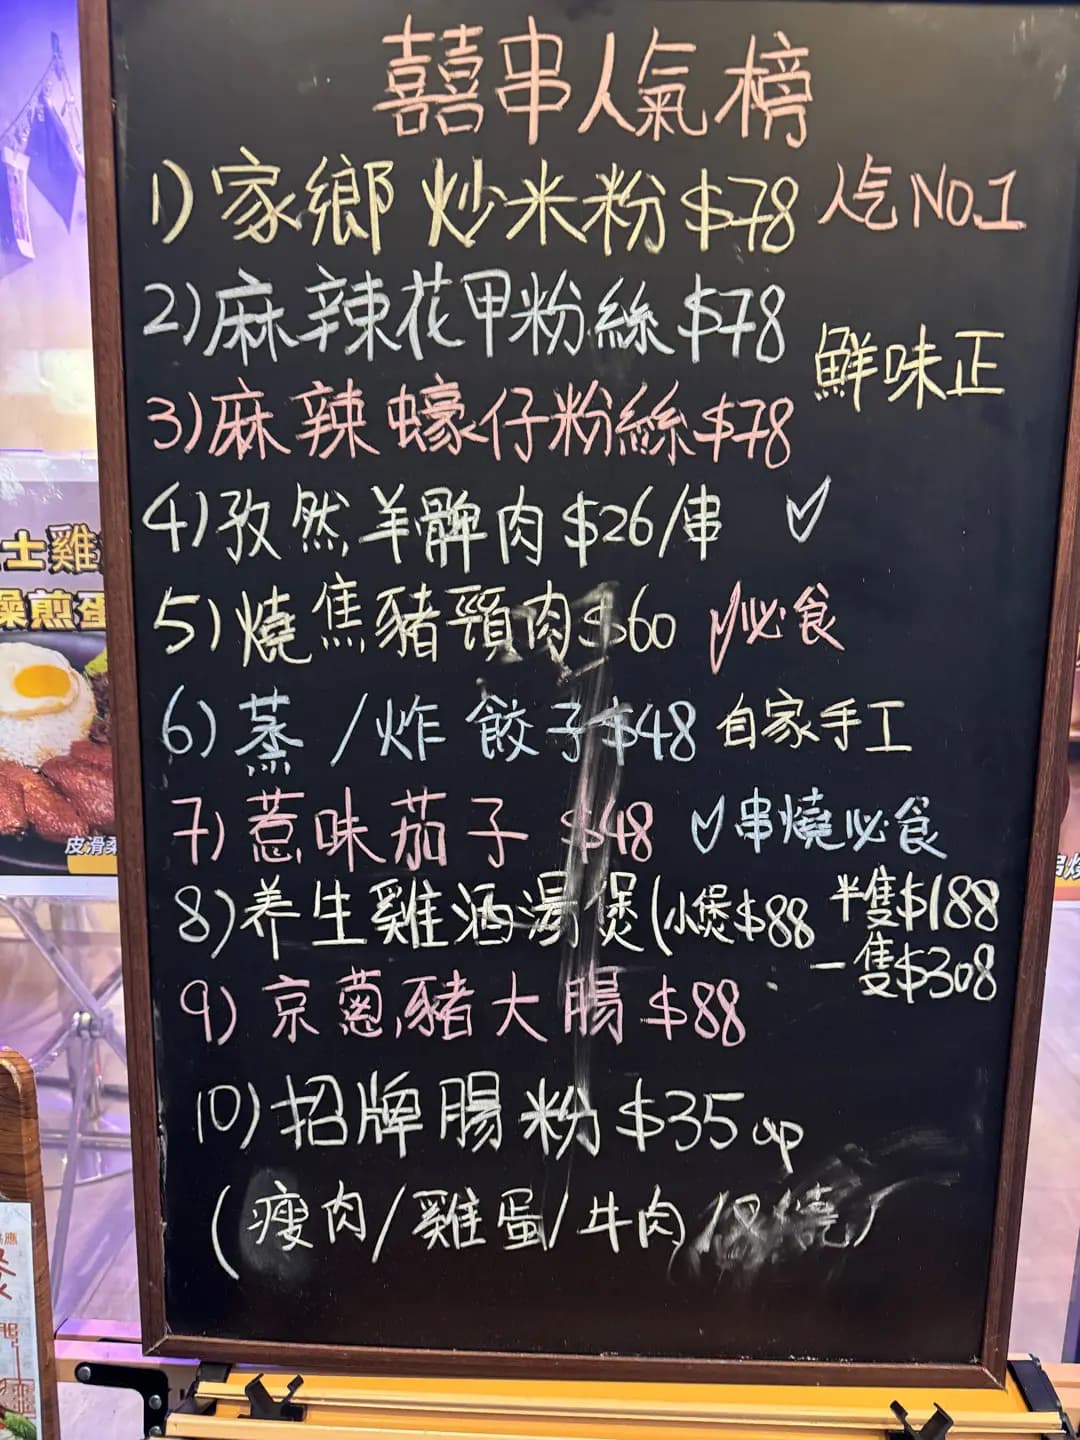 囍串人氣榜
1) 家鄉炒米粉 $78 人气 NO.1
2) 麻辣花甲粉絲 $78
鮮味正
3) 麻辣蠔仔粉絲 $78
4) 孜然羊髀肉 $26/串 ✓
5) 燒焦豬頸肉 $60 ✓必食
6) 蒸/炸餃子 $48 自家手工
7) 惹味茄子 $48 ✓串燒必食
8) 养生雞酒湯煲 (小煲$88 半隻$188
一隻$308
9) 京蔥豬大腸 $88
10) 招牌腸粉 $35 up
(瘦肉/雞蛋/牛肉/叉燒)
士雞
燥煎蛋
皮滑